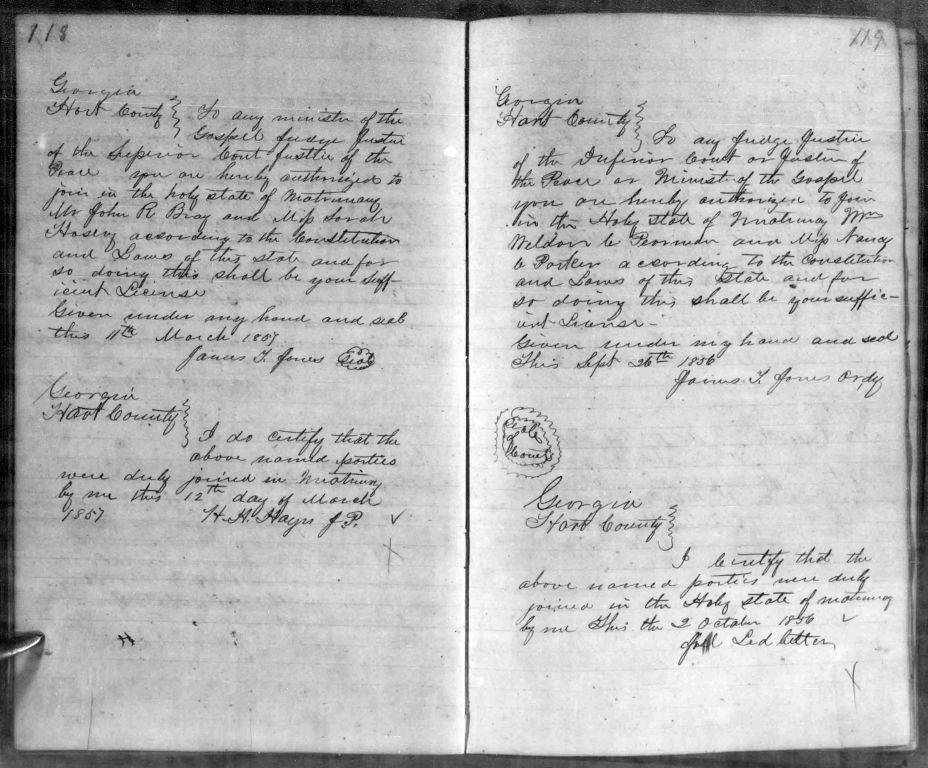 118
Georgia
Hart County } To any minister of the
Gospel Judge Justice
of the Superior Court Justice of the
Peace you are hereby authorized to
join in the holy state of Matrimony
Mr John R Bray and Miss Sarah
according to the Constitution
and Laws of this state and for
so doing this shall be your suff-
icient License
Given under my hand and seal
this 11th March 1857
James T. Jones Seal
Georgia
Hart County }
I do certify that the
above named parties
were duly joined in Matrimony
by me this 12th day of March
1857 H. H. Hays J P.
119
Georgia
Hart County }
To any Judge Justice
of the Inferior Court or Justice of
the Peace or Minist of the Gospel
you are hereby authorized to join
in the Holy state of Matrimony Mr
Weldon C and Miss Nancy
C Parker according to the Constitution
and Laws of this State and for
so doing this shall be your suffic-
ient License -
Given under my hand and seal
This Sept 26th 1856
James T. Jones Ordy
Seale
of
Court
Georgia
Hart County }
I Certify that the
above named parties were duly
joined in the Holy state of matrimony
by me This the 2 October 1856
Ledbetter